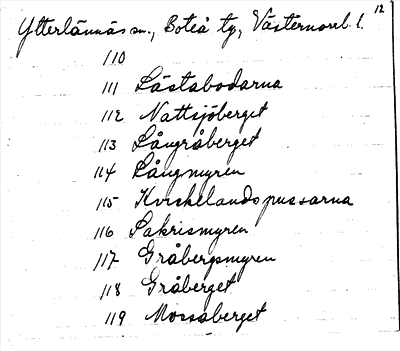 12
Ytterlännäs sn., Boteå tg, Västernorrl. l.
110
111 Låstabodarna
112 Nattsjöberget
113 Långråberget
114 Långmyren
115 Kvisslelandspussarna
116 Sakrismyren
117 Gråbergsmyren
118 Gråberget
119 Mossaberget